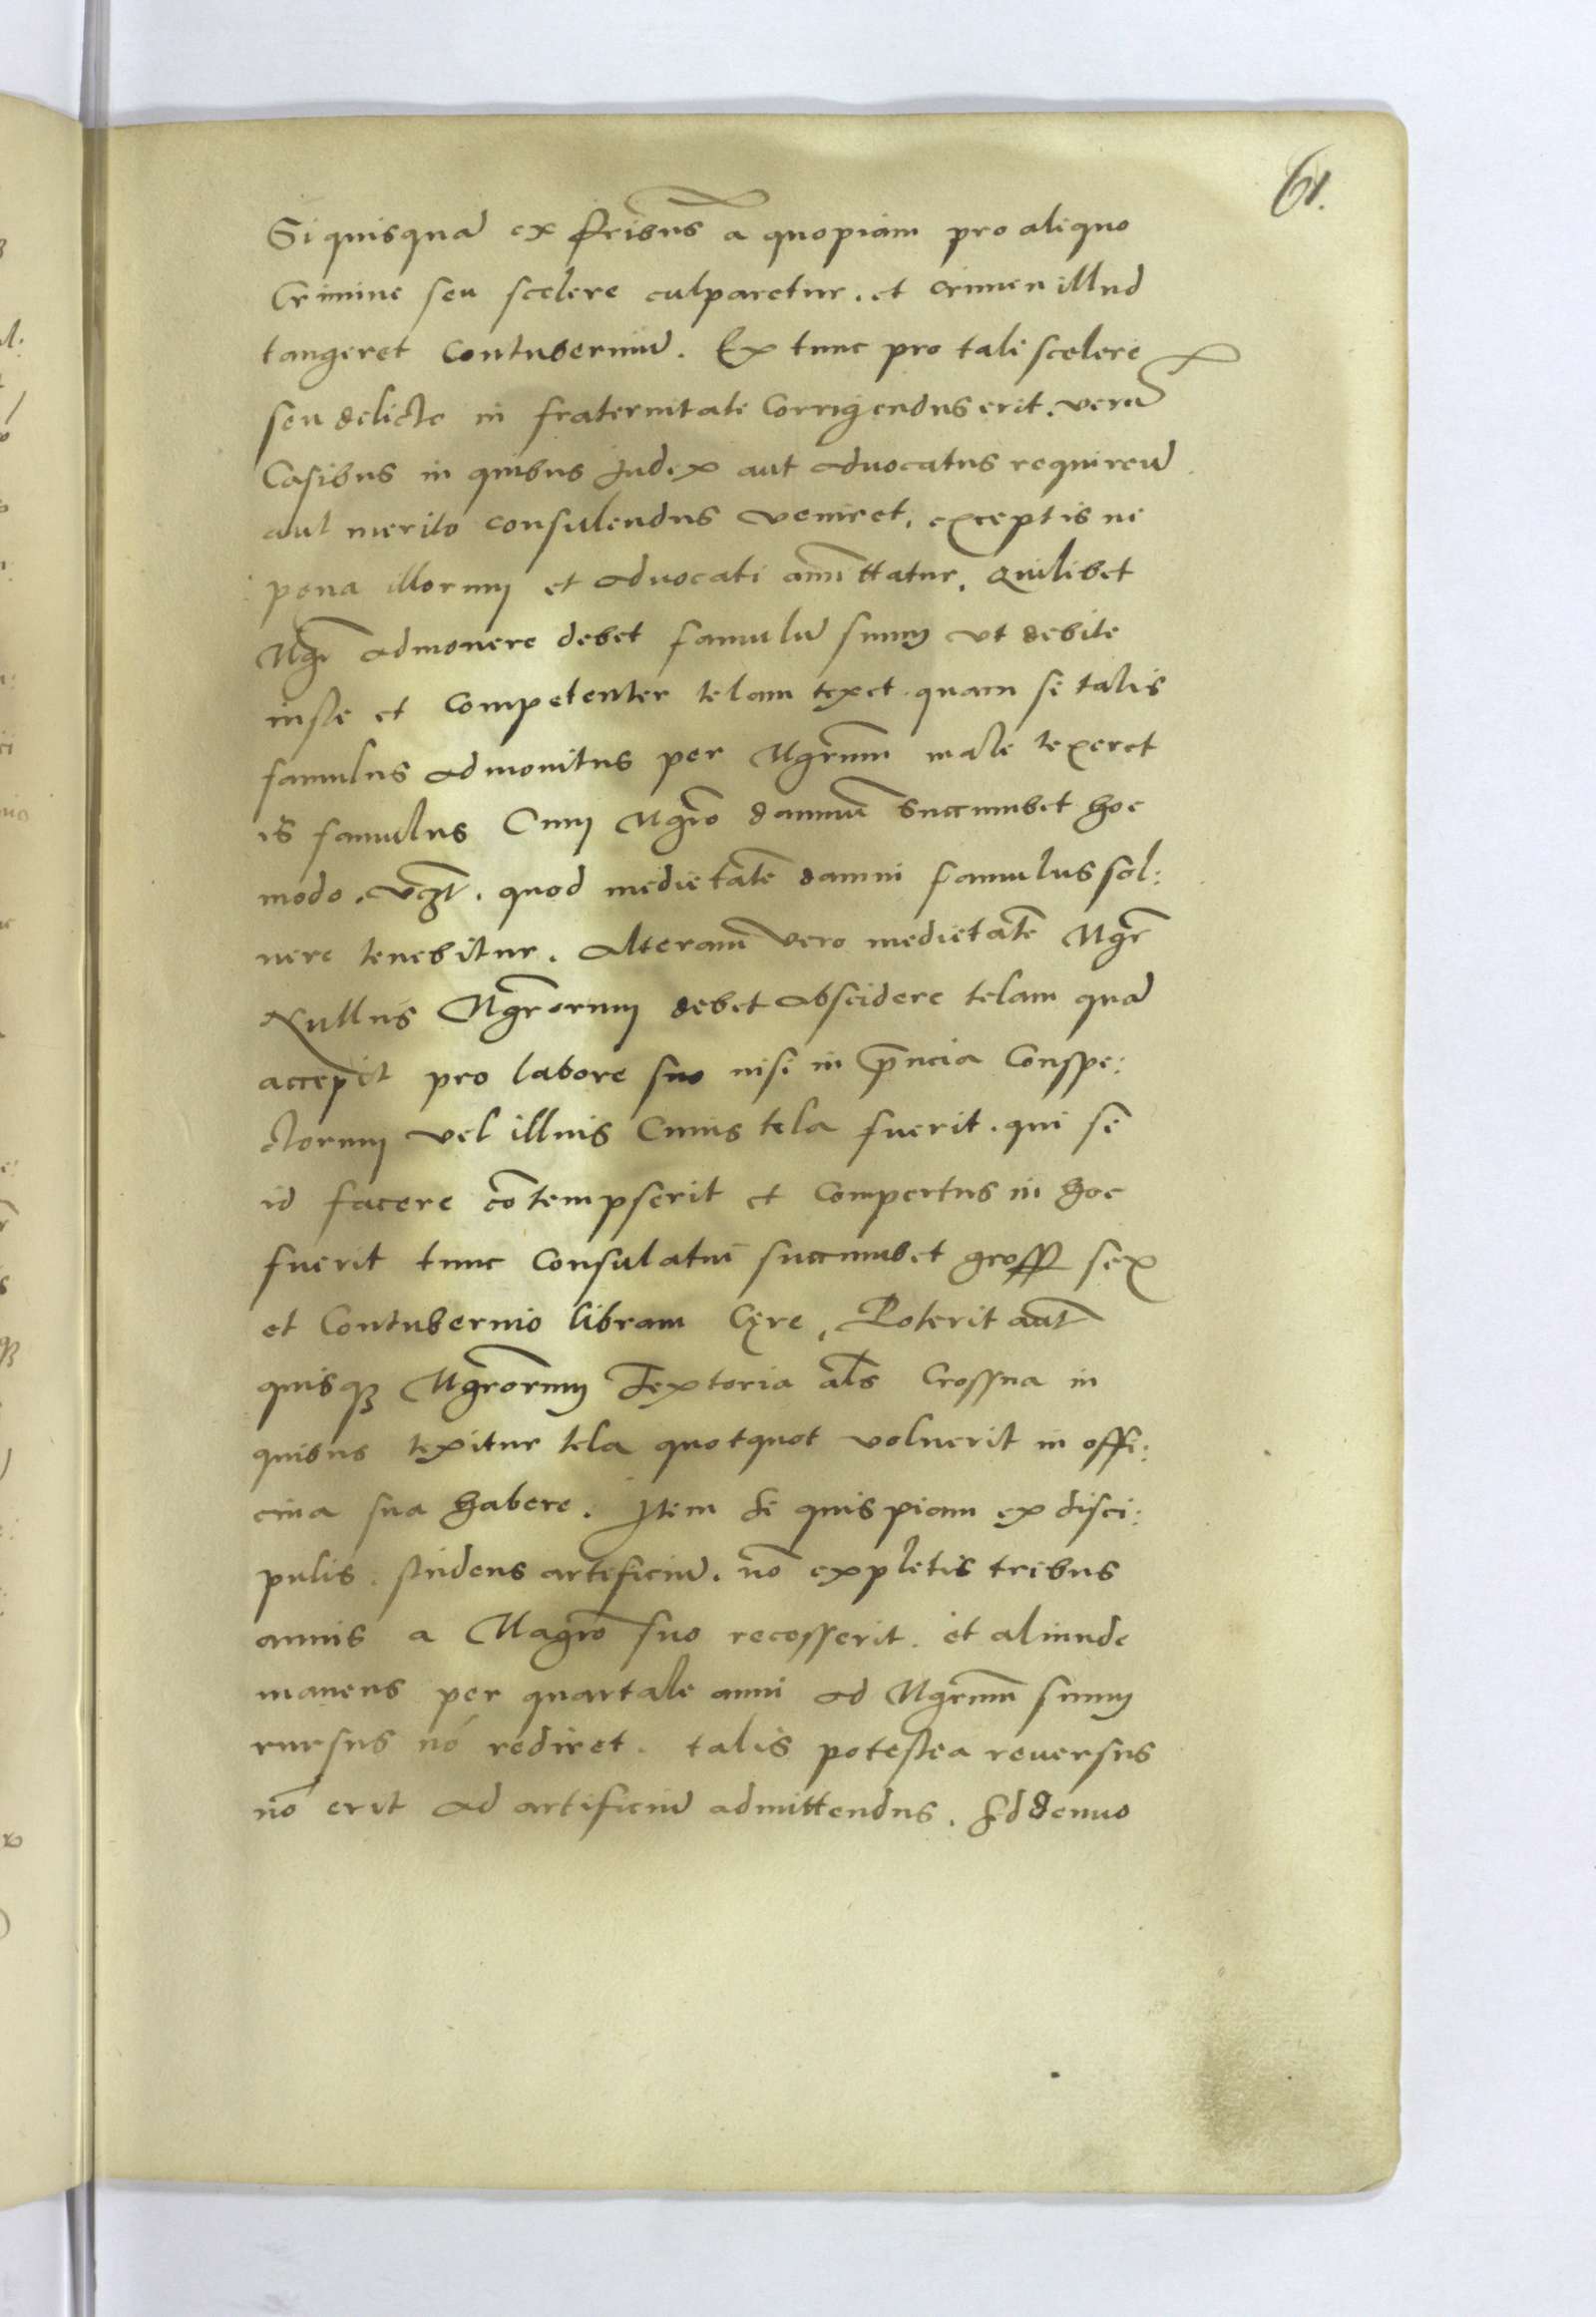 61.
Si quisquā ex fr̄ibus a quopiam pro aliquo
Crimine seu scelere culparetur . et crimen illud
tangeret contuberniū . Ex tunc pro tali scelere
seu delicto in fraternitate Corrigendus erit . verū
Casibus in quibus Judex aut advocatus requireret̄
aut merito consulendus veniret, exceptis ne
pena illorum et advocati amīttatur. Quilibet
Mgr̄ admonere debet famulū suum ut debite
iuste et Competenter telam texet . quam si talis
famulus admonitus per Mgr̄um male texeret
is famulus Cum Mgr̄o damnū succumbet hoc
modo . vcꝫt̄ . quod medietatē damni famulus sol:
uere tenebitur . Alteram̄ vero medietatē Mgr̄
Nullus Mgr̄orum debet abscidere telam quā
accepit pro labore suo nisi in p̄ncia Conspe:
ctorum vel illius Cuius tela fuerit . qui si
id facere cōtempserit et Compertus in hoc
fuerit tunc Consulatui succumbet gross sex
et Contubernio libram Cęre, Poterit aut̄
quisqꝫ Mgr̄orum Textoria al̄s Crossna in
quibus texitur tela quotquot voluerit in offi:
cina sua habere . Item si quispiam ex disci:
pulis . studens artificiū . nō expletis tribus
annis a Magr̄o suo recesserit . et aliunde
manens per quartale anni ad Mgr̄um suum
rursus nō rediret . talis potestea reuersus
nō erit ad artificiū admittendus . Sed denuo